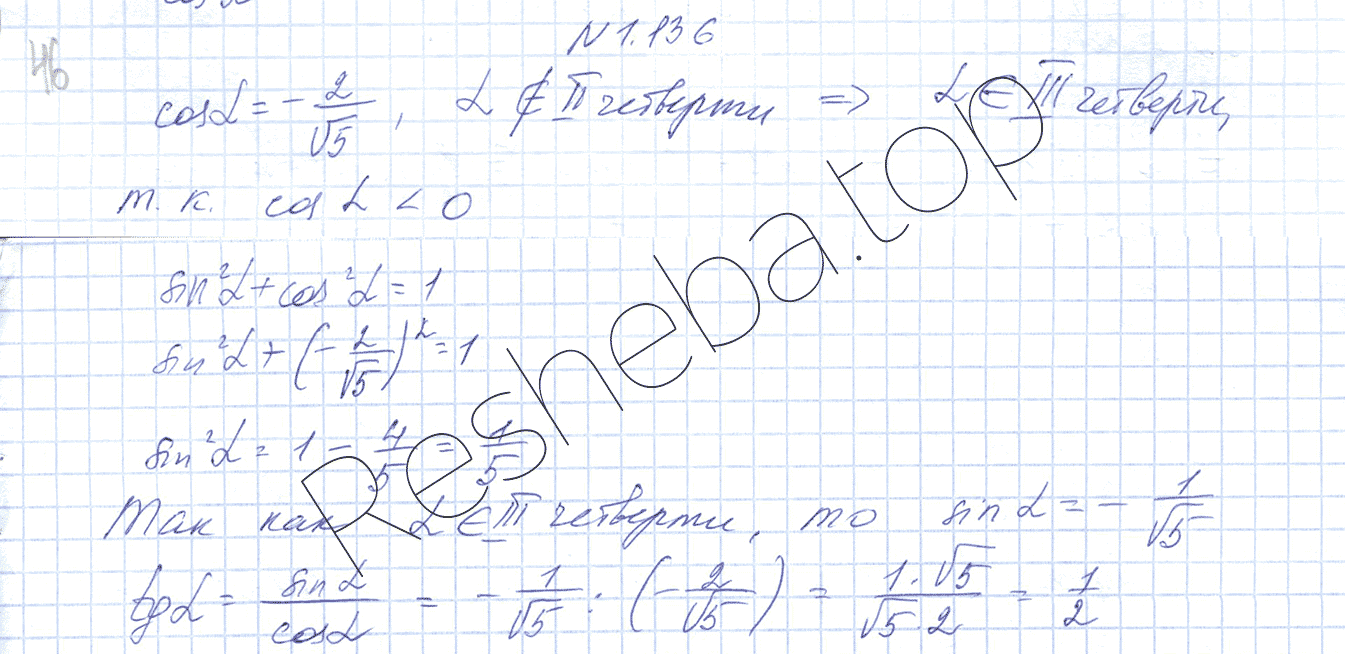 46
N 1.136
cos α = - 2/√5, α ∉ II четверти => α ∈ III четверти,
т. к. cos α < 0
sin²α + cos²α = 1
sin²α + (- 2/√5)² = 1
sin²α = 1 - 4/5 = 1/5
Так как α ∈ III четверти, то sin α = - 1/√5
tg α = sin α/cos α = - 1/√5 : (- 2/√5) = 1·√5/√5·2 = 1/2
Resheba.top